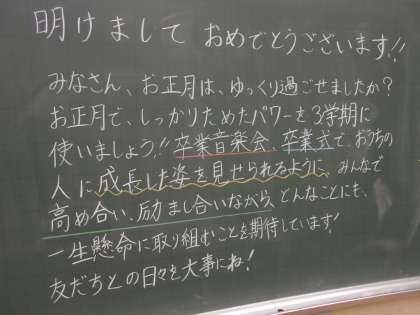 明けまして おめでとうございます!!
みなさん、お正月は、ゆっくり過ごせましたか？
お正月で、しっかりためたパワーを3学期に
使いましょう!! 卒業音楽会、卒業式で、おうちの
人に成長した姿を見せられるように、みんなで
高め合い、励まし合いながら、どんなことにも、
一生懸命に取り組むことを期待しています!
友だちとの日々を大事にね!